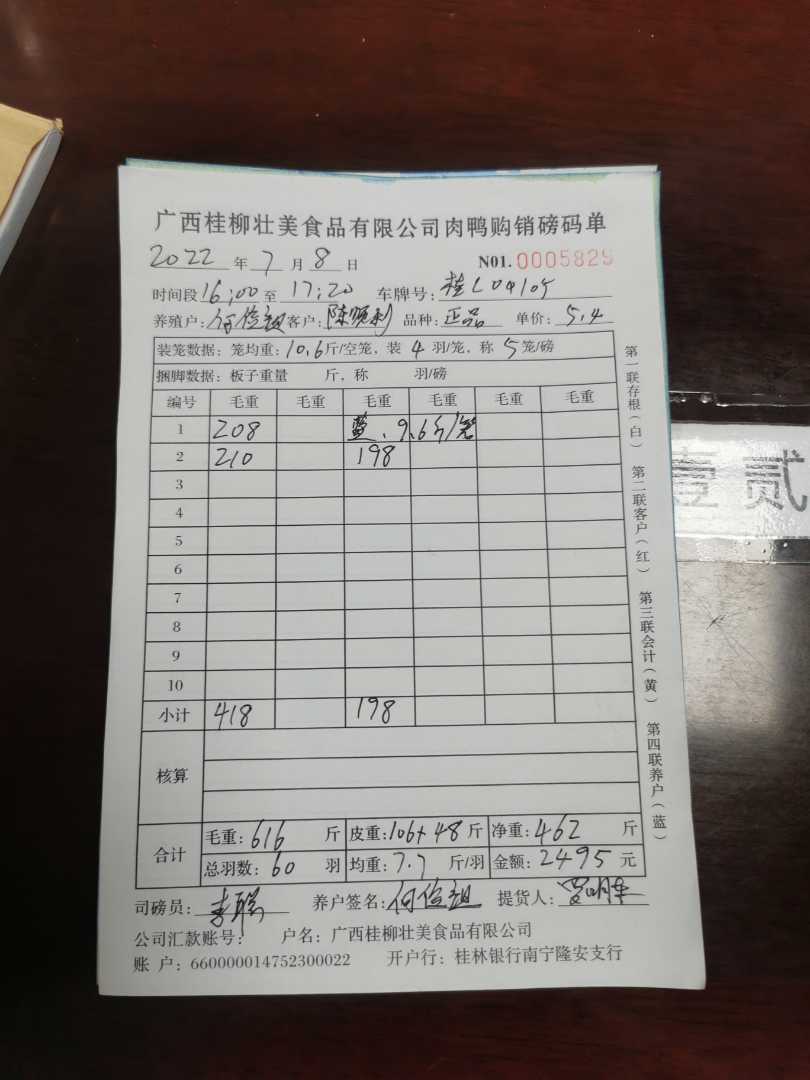 广西桂柳壮美食品有限公司肉鸭购销磅码单
2022 年 7 月 8 日 N01. 0005829
时间段 16:00 至 17:20 车牌号: 桂L04105
养殖户: 何俭超 客户: 陈顺利 品种: 正品 单价: 5.4
装笼数据: 笼均重: 10.6 斤/空笼, 装 4 羽/笼, 称 5 笼/磅
捆脚数据: 板子重量 斤, 称 羽/磅
编号 毛重 毛重 毛重 毛重 毛重 毛重
1 208 蓝, 9.6斤/笼
2 210 198
3
4
5
6
7
8
9
10
小计 418 198
核算
合计 毛重: 616 斤 皮重: 106+48 斤 净重: 462 斤
总羽数: 60 羽 均重: 7.7 斤/羽 金额: 2495 元
司磅员: 李 养户签名: 何俭超 提货人:
公司汇款账号: 户名: 广西桂柳壮美食品有限公司
账 户: 660000014752300022 开户行: 桂林银行南宁隆安支行
第一联存根(白) 第二联客户(红) 第三联会计(黄) 第四联养户(蓝)
壹贰